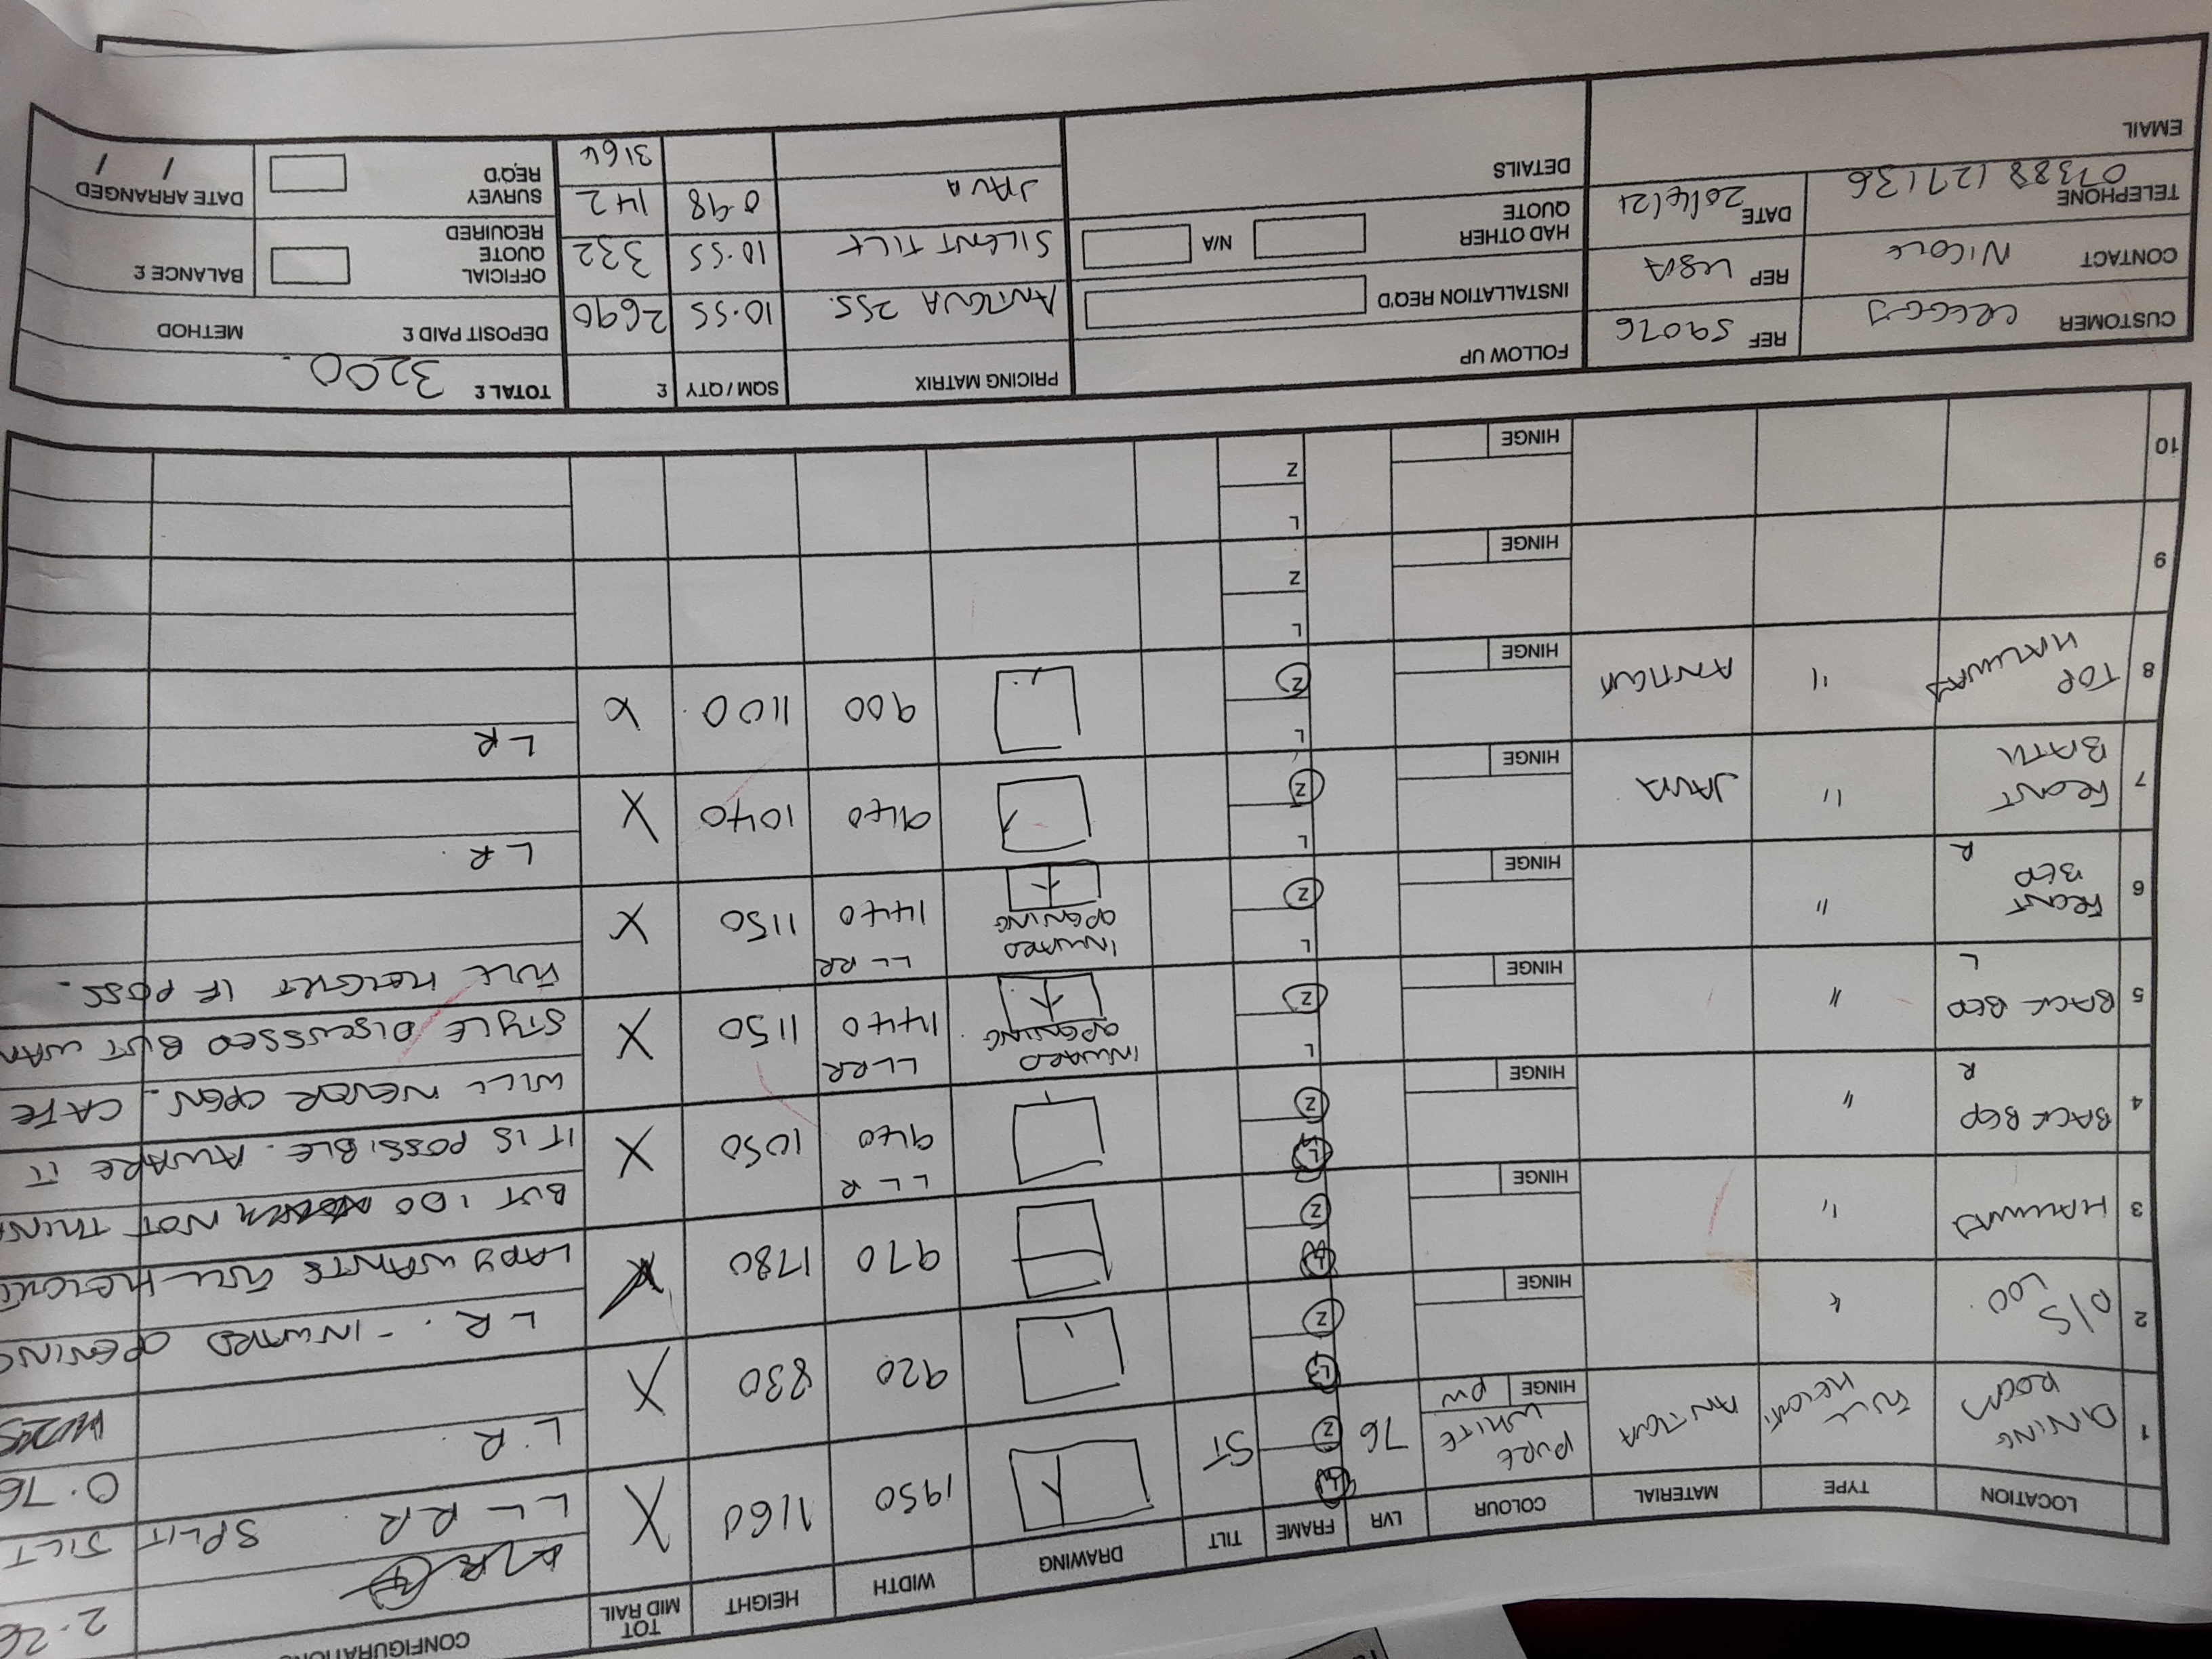 LOCATION TYPE MATERIAL COLOUR LVR FRAME TILT DRAWING WIDTH HEIGHT TOT MID RAIL CONFIGURATIONS
2.26
1 DINING ROOM FULL HEIGHT ANTIGUA PURE WHITE HINGE PW 76 L Z ST 1950 1160 X LLRR SPLIT TILT
0.76
2 D/S LOO " HINGE L Z 920 830 X L R
3 HALLWAY " HINGE L Z 970 1780 L R. - INWARD OPENING
LADY WANTS FULL HEIGHT
BUT I DO NOT THINK
4 BACK BED R " HINGE L Z LLR 940 1050 X IT IS POSSIBLE. AWARE IT
WILL NEVER OPEN. CAFE
5 BACK BED L " HINGE L Z INWARD OPENING LLRR 1440 1150 X STYLE DISCUSSED BUT WAN
FULL HEIGHT IF POSS.
6 FRONT BED R " HINGE L Z INWARD OPENING LLRR 1440 1150 X
7 FRONT BATH " JAVA HINGE L Z 940 1040 X L R
8 TOP HALLWAY " ANTIGUA HINGE L Z 900 1100 X L R
9 HINGE L Z
10 HINGE L Z
CUSTOMER REF 59076
CONTACT NICOLE REP LISA
TELEPHONE 07388 127136 DATE 20/4/21
EMAIL
FOLLOW UP
INSTALLATION REQ'D
HAD OTHER QUOTE N/A
DETAILS
PRICING MATRIX SQM / QTY £
ANTIGUA 255. 10.55 2690
SILENT TILT 10.55 332
JAVA 0.98 142
3164
TOTAL £ 3200.
DEPOSIT PAID £ METHOD
OFFICIAL QUOTE REQUIRED BALANCE £
SURVEY REQ'D DATE ARRANGED / /